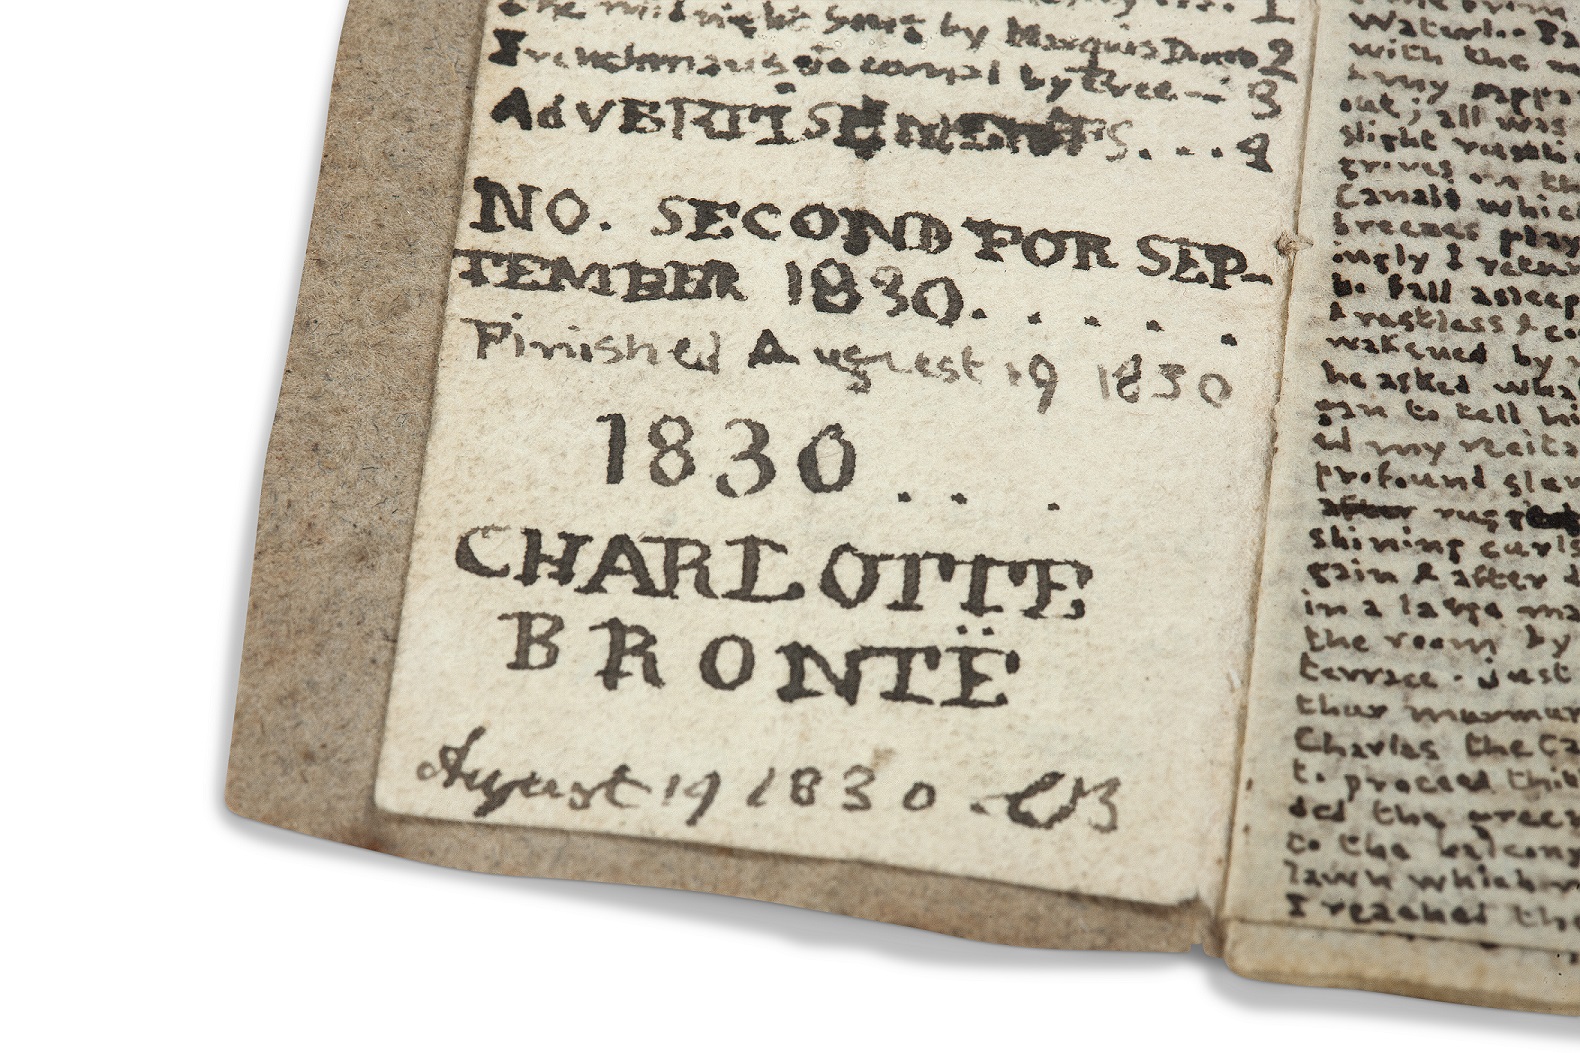 The midnight Song by Marquis Douro 2
Frenchmans journal by Tree — 3
AdVERTISEMENTS . . . 4
NO. SECOND FOR SEP-
TEMBER 1830. . . . . .
Finished August 19 1830
1830 . . .
CHARLOTTE
BRONTË
August 19 1830 . CB
Waterloo Pa
with the
army
out; all was
slight
groves on th
Canals which
breezes play
ingly I
to fall asleep
& restless & co
wakened by
he asked what
gan to tell hi
ed my recita
profound slu
after
shining curls
gain & after d
in a large ma
the room by
terrace. just
thus murmur
Charles the
to proceed thi
ded the green
to the balcony
lawn which
I reached the